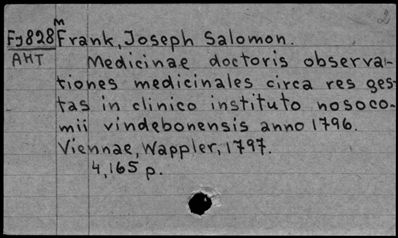 m
Fy828 Frank, Joseph Salomon.
AHT Medicinae doctoris observa-
tiones medicinales circa res ges-
tas in clinico instituto nosoco-
mii vindebonensis anno 1796.
Viennae, Wappler, 1797.
4,165 p.
2